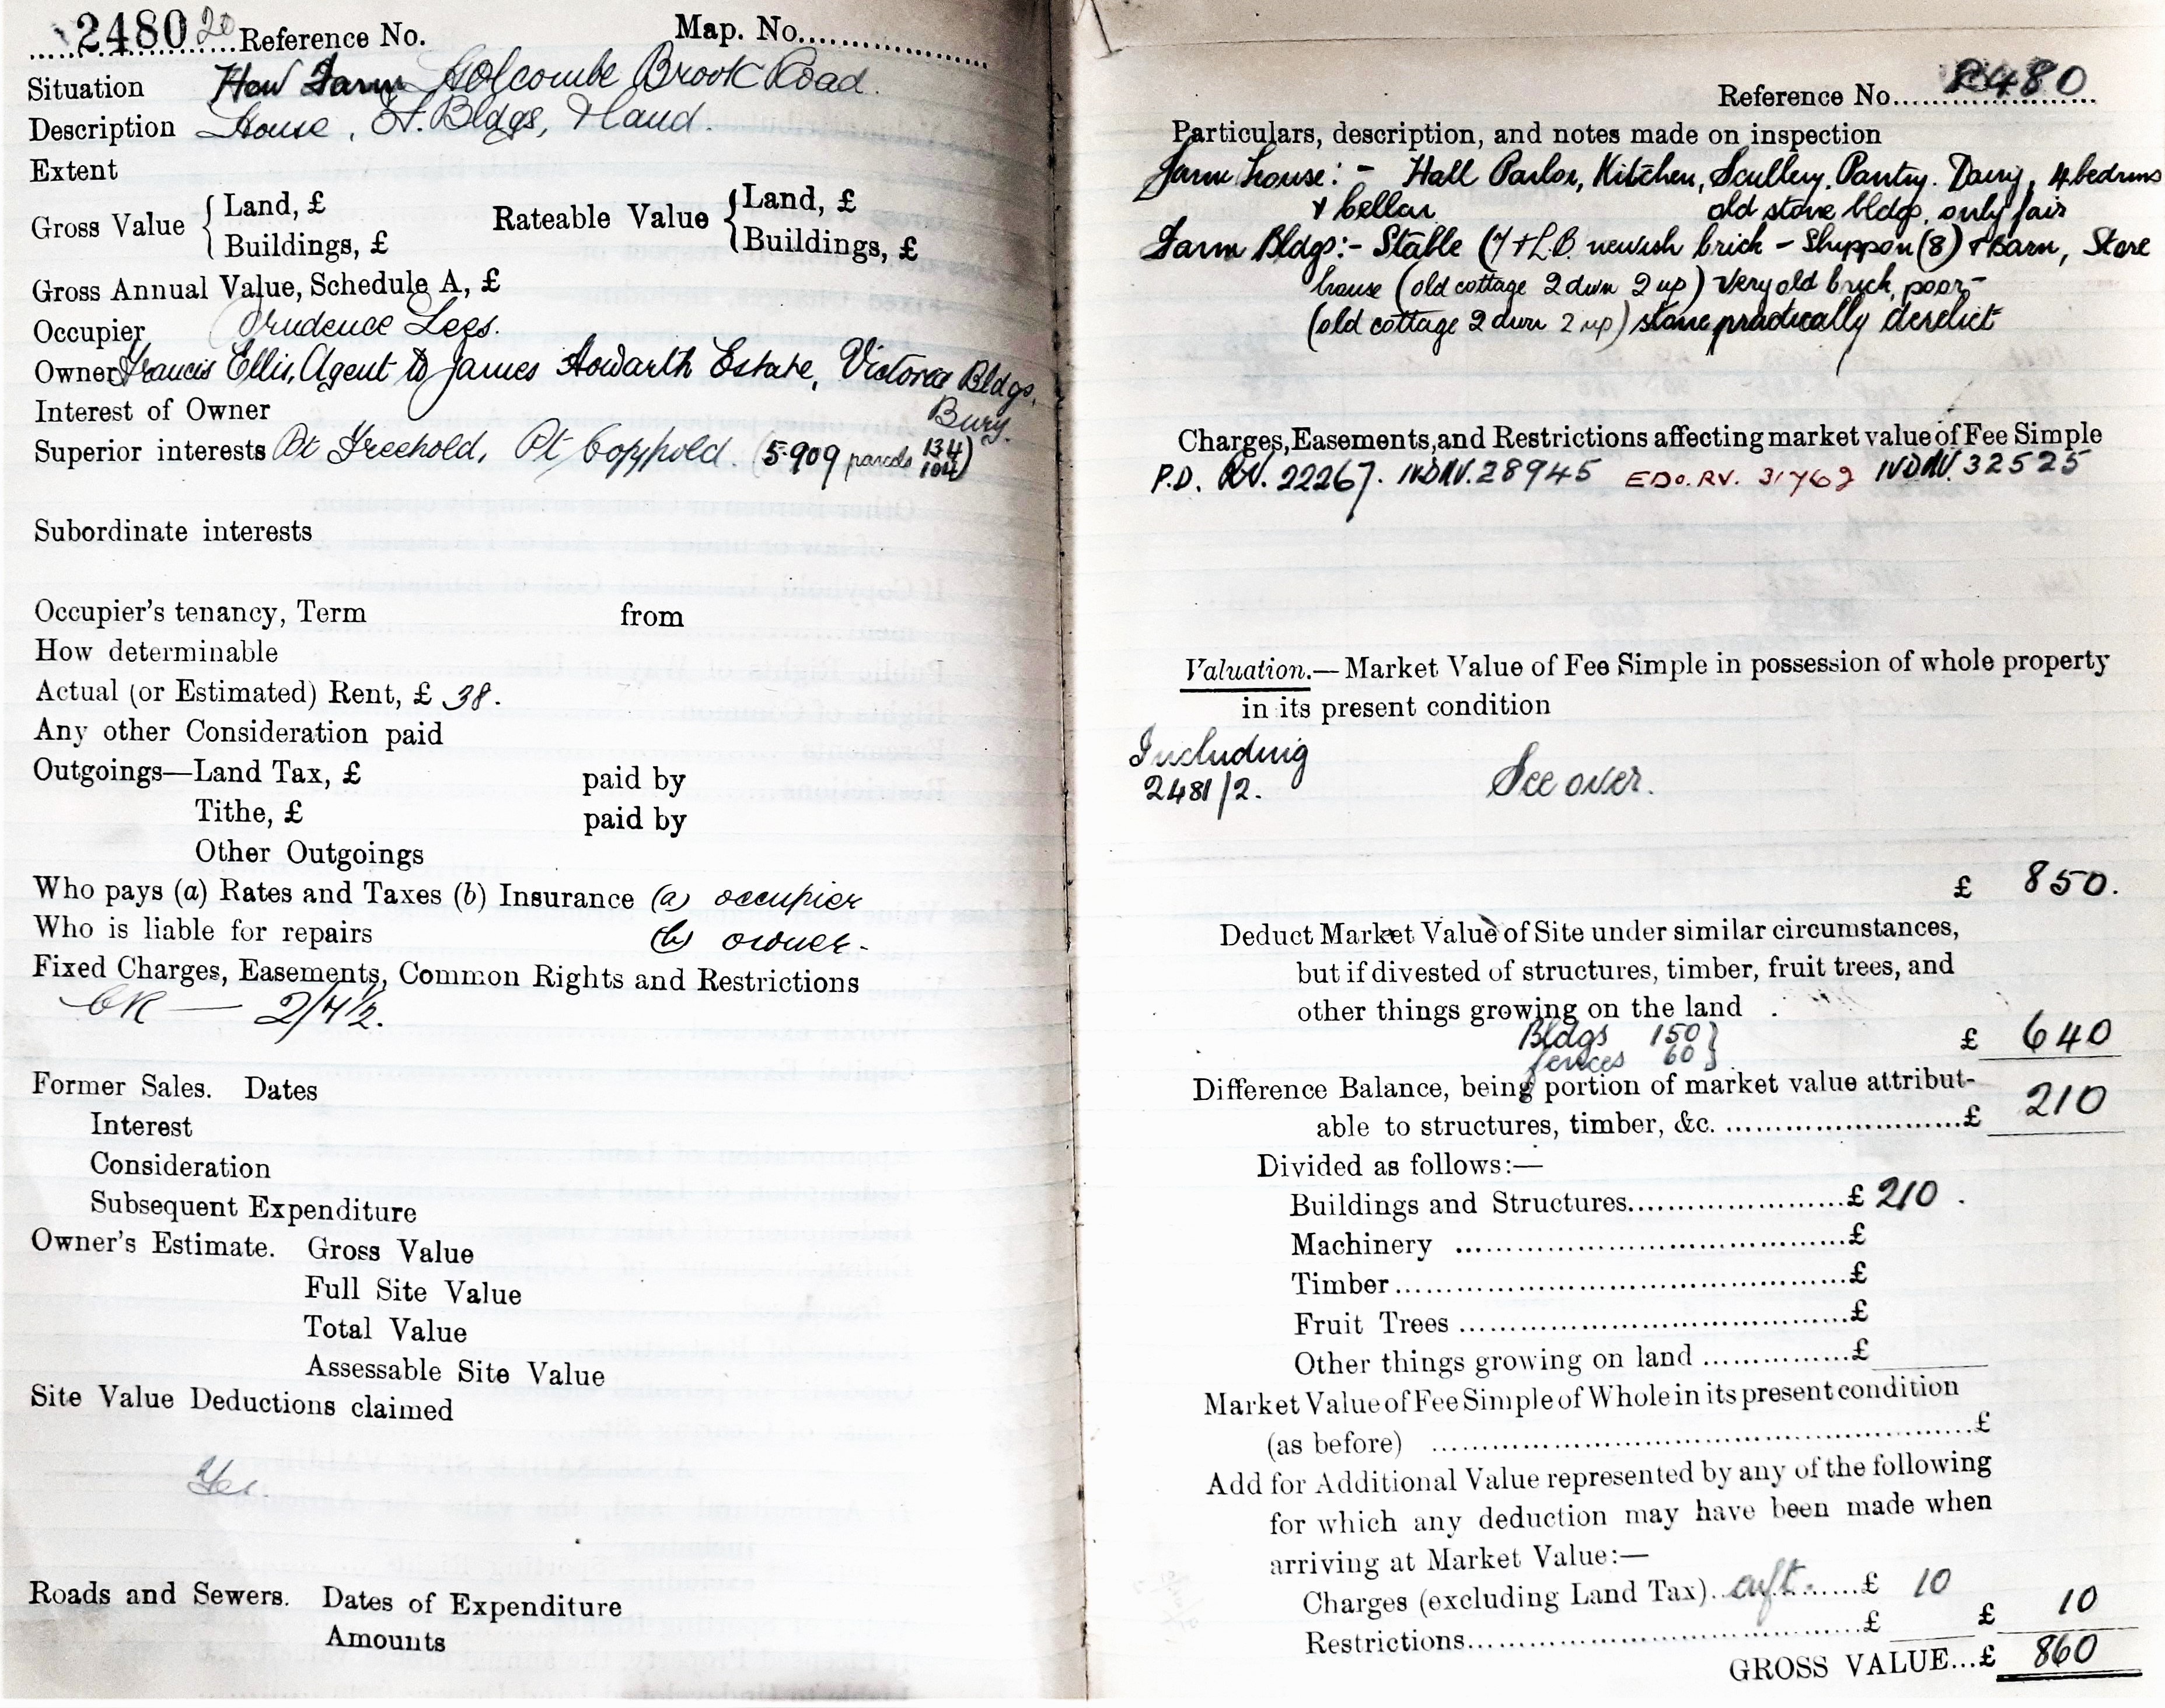 2480 20 Reference No. Map. No.
Situation How Farm Holcombe Brook Road.
Description House, F. Bldgs, & Land.
Extent
Gross Value { Land, £ Rateable Value { Land, £
Buildings, £ Buildings, £
Gross Annual Value, Schedule A, £
Occupier Prudence Lees.
Owner Francis Ellis, Agent to James Howarth Estate, Victoria Bldgs,
Bury.
Interest of Owner
Superior interests Pt Freehold, Pt Copyhold. (5·909 parcels 134 104)
Subordinate interests
Occupier's tenancy, Term from
How determinable
Actual (or Estimated) Rent, £ 38.
Any other Consideration paid
Outgoings—Land Tax, £ paid by
Tithe, £ paid by
Other Outgoings
Who pays (a) Rates and Taxes (b) Insurance (a) occupier
Who is liable for repairs (b) owner.
Fixed Charges, Easements, Common Rights and Restrictions
CR — 2/4½.
Former Sales. Dates
Interest
Consideration
Subsequent Expenditure
Owner's Estimate. Gross Value
Full Site Value
Total Value
Assessable Site Value
Site Value Deductions claimed
Yes.
Roads and Sewers. Dates of Expenditure
Amounts
Reference No. 2480
Particulars, description, and notes made on inspection
Farm house:- Hall Parlor, Kitchen, Scullery, Pantry. Dairy, 4 bedrms
& Cellar old stone bldg, only fair
Farm Bldgs:- Stable (7 + L.B. newish brick - Shippon (8) & Barn, Store
house (old cottage 2 dwn 2 up) Very old brick, poor-
(old cottage 2 dwn 2 up) stone practically derelict
Charges, Easements, and Restrictions affecting market value of Fee Simple
P.D. RV. 22267. IVDRV. 28945 EDo. RV. 31762 IVDRV. 32525
Valuation.—Market Value of Fee Simple in possession of whole property
in its present condition
Including
2481/2. See over.
£ 850.
Deduct Market Value of Site under similar circumstances,
but if divested of structures, timber, fruit trees, and
other things growing on the land .
Bldgs 150 }
fences 60 } £ 640
Difference Balance, being portion of market value attribut-
able to structures, timber, &c. £ 210
Divided as follows:—
Buildings and Structures £ 210.
Machinery £
Timber £
Fruit Trees £
Other things growing on land £
Market Value of Fee Simple of Whole in its present condition
(as before) £
Add for Additional Value represented by any of the following
for which any deduction may have been made when
arriving at Market Value:—
Charges (excluding Land Tax) £ 10
Restrictions £ £ 10
GROSS VALUE...£ 860